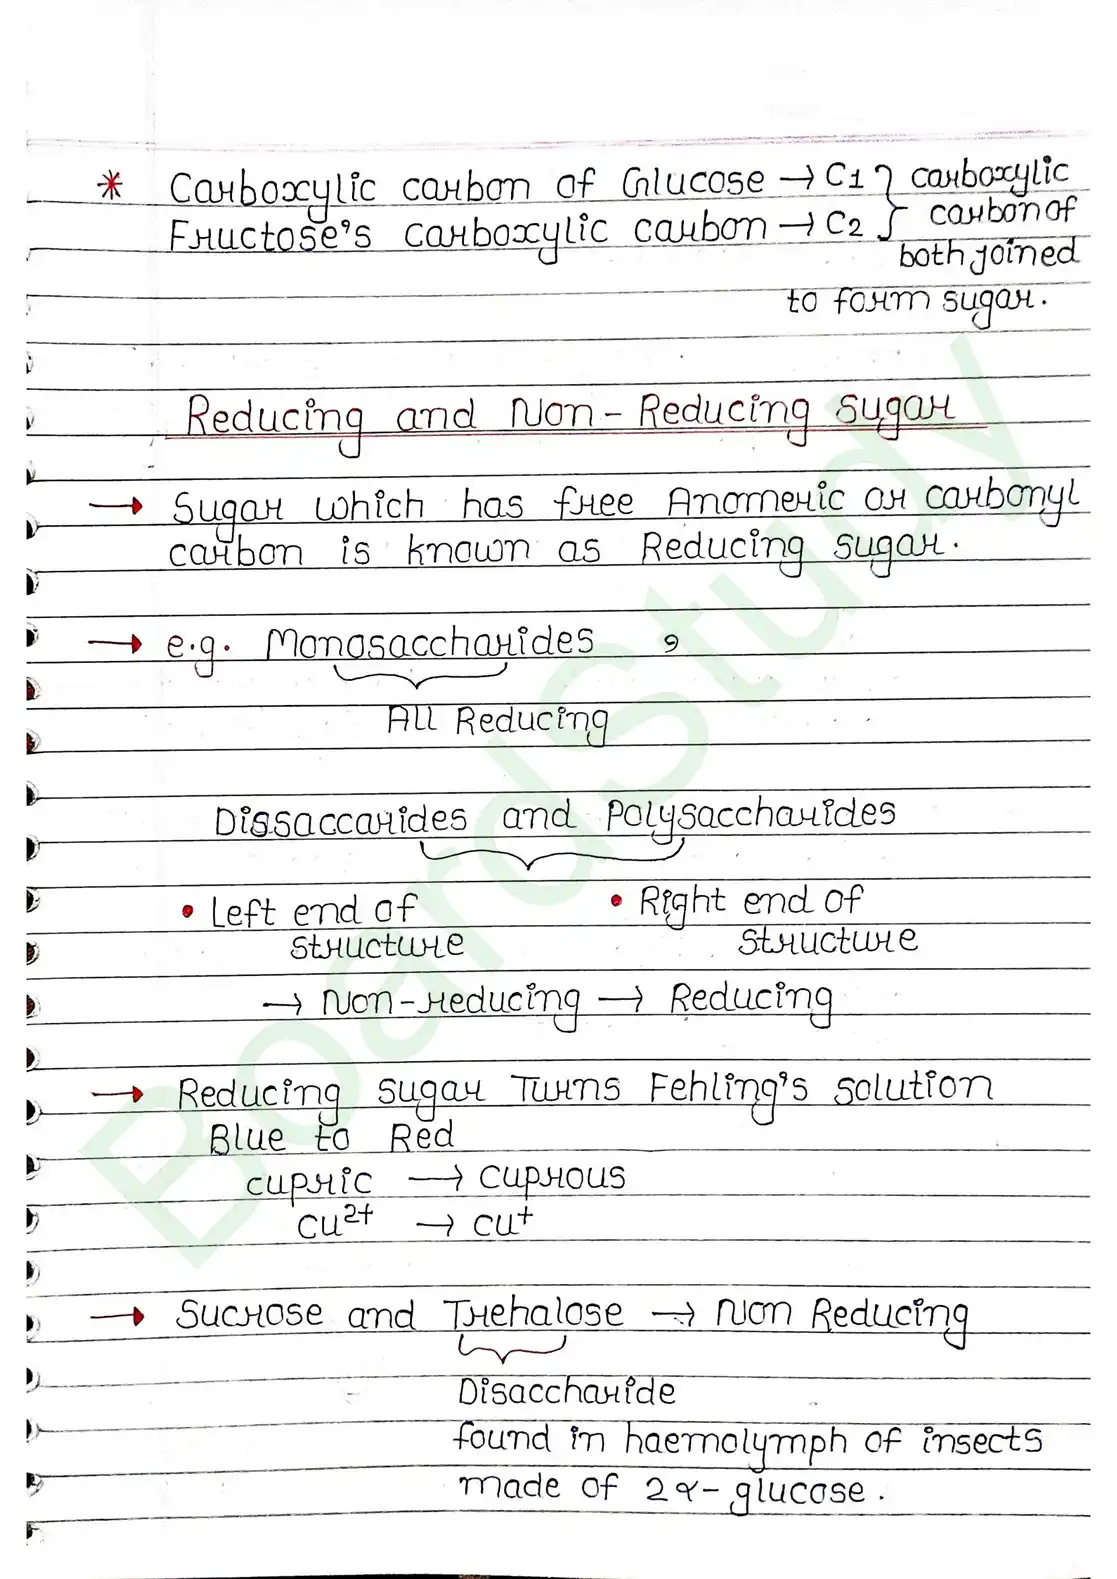 * Carboxylic carbon of Glucose → C1 } carboxylic
Fructose's carboxylic carbon → C2 } carbon of
both joined
to form sugar.
Reducing and Non-Reducing Sugar
→ Sugar which has free Anomeric or carbonyl
carbon is known as Reducing sugar.
→ e.g. Monosaccharides ,
All Reducing
Dissaccarides and Polysaccharides
• Left end of
structure
• Right end of
structure
→ Non-reducing → Reducing
→ Reducing sugar Turns Fehling's solution
Blue to Red
cupric → cuprous
Cu²⁺ → Cu⁺
→ Sucrose and Trehalose → Non Reducing
Disaccharide
found in haemolymph of insects
made of 2α-glucose.
BoardStudy